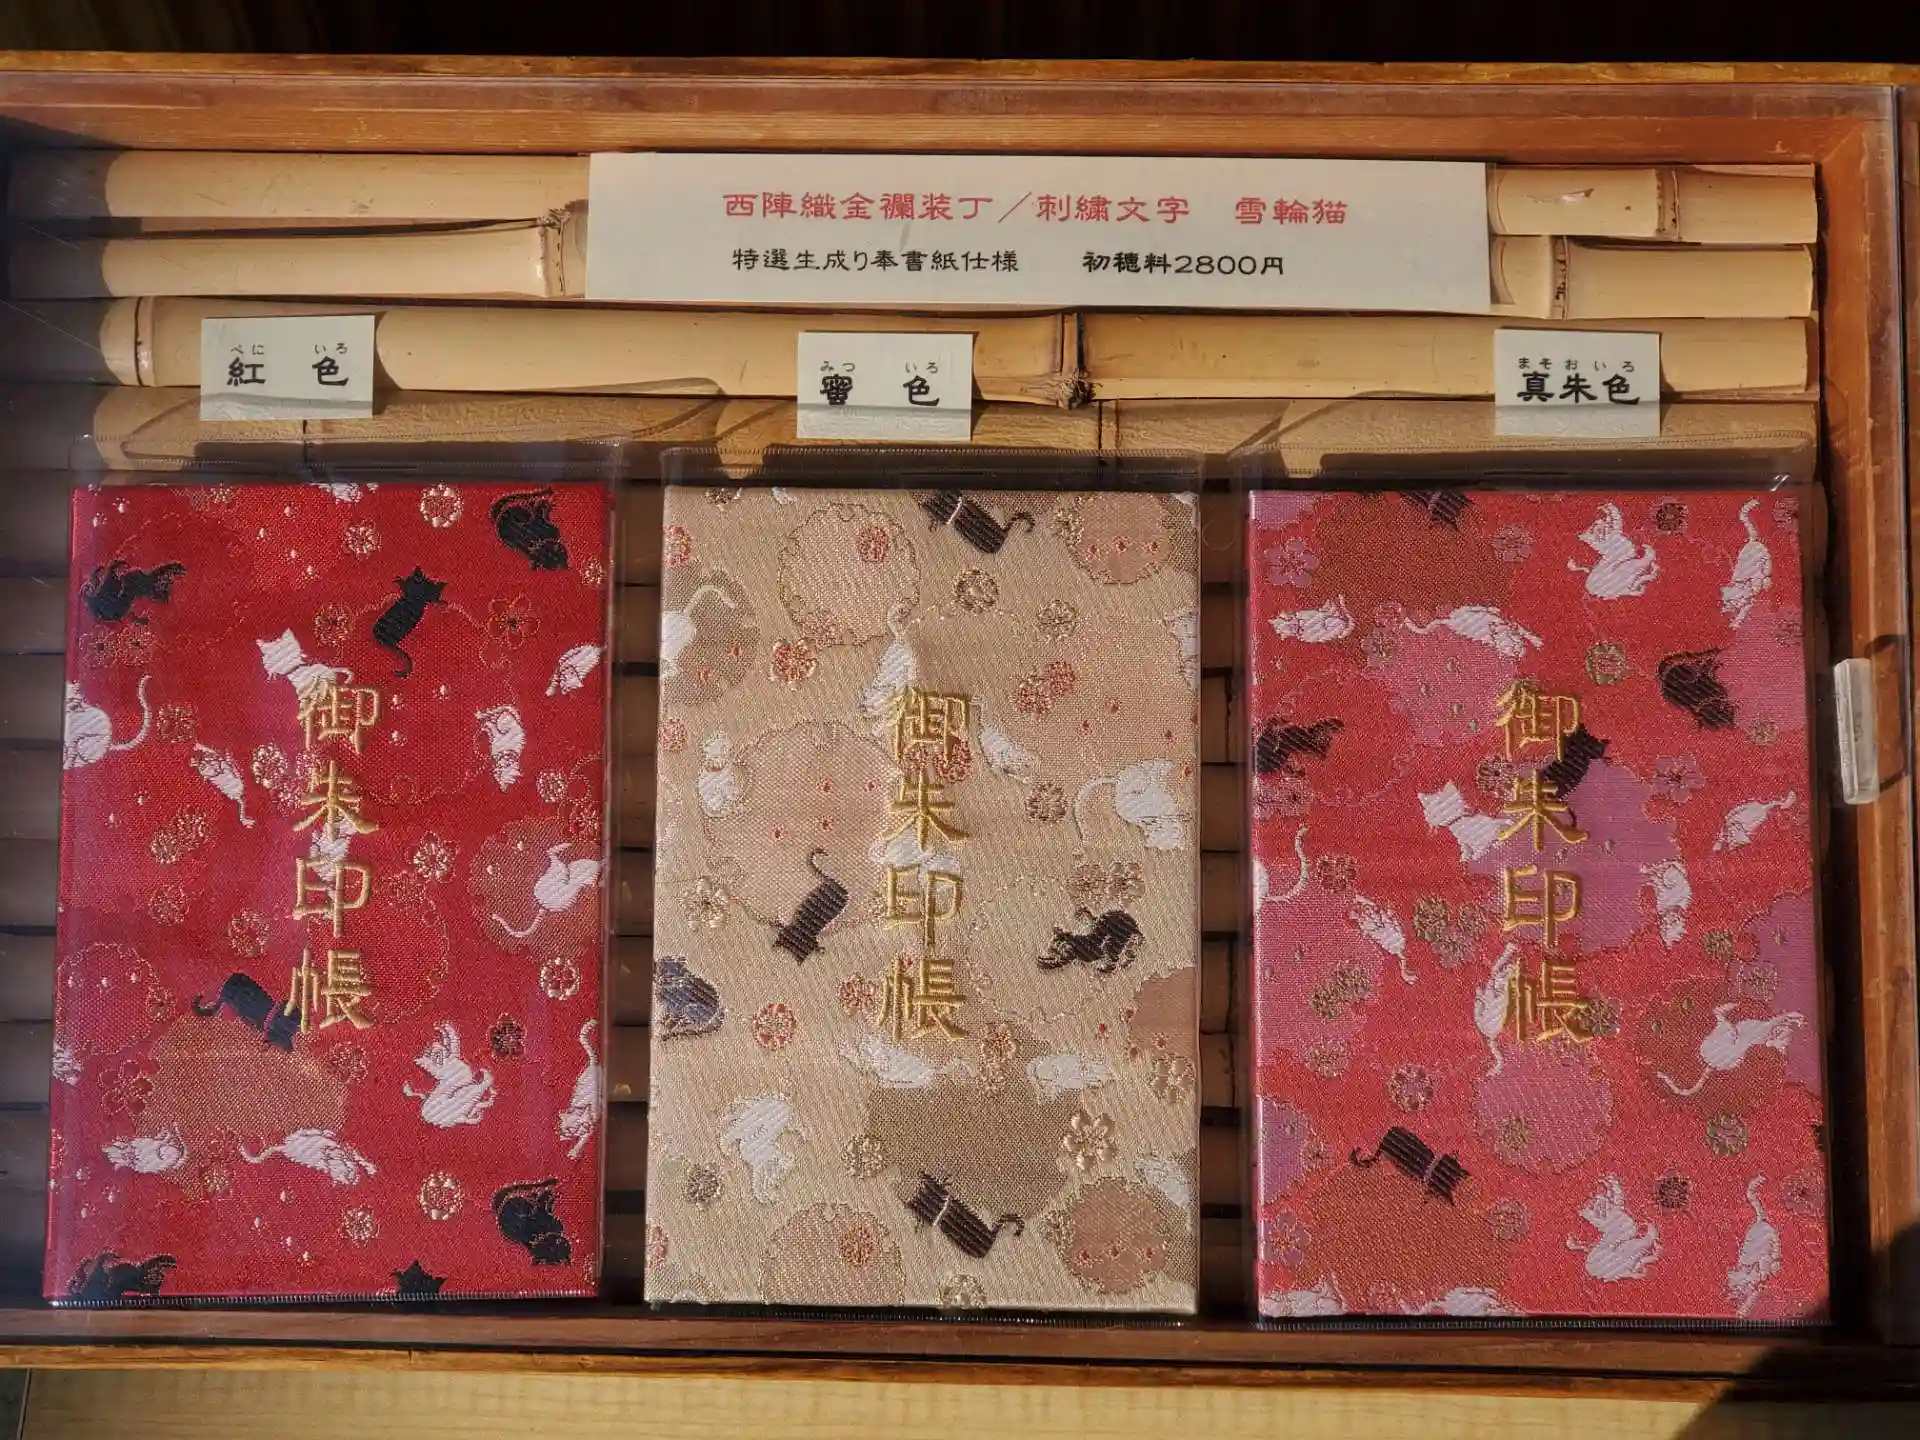 西陣織金襴装丁／刺繍文字　雪輪猫
特選生成り奉書紙仕様　初穂料2800円
べに　いろ
紅　色
みつ　いろ
蜜　色
まそおいろ
真朱色
御朱印帳
御朱印帳
御朱印帳